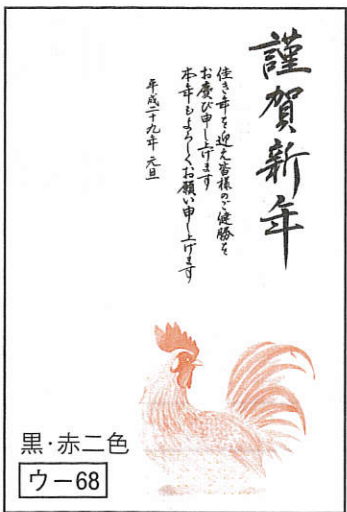 謹賀新年
佳き年を迎え皆様のご健勝を
お慶び申し上げます
本年もよろしくお願い申し上げます
平成二十九年 元旦
黒・赤二色
ウー68